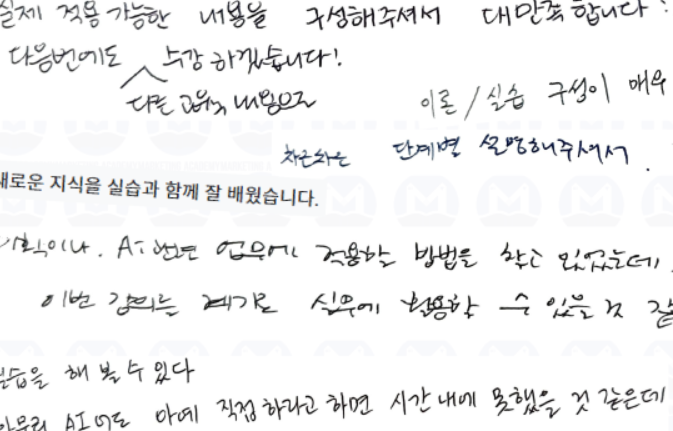 실제 적용 가능한 내용을 구성해주셔서 대만족합니다!
다음번에도 수강 하겠습니다!
다른 교육 내용으로
이론/실습 구성이 매우
차근차근 단계별 설명해주셔서.
새로운 지식을 실습과 함께 잘 배웠습니다.
AI 관련 업무에 적용할 방법을 찾고 있었는데,
이번 강의는 계기로 실무에 활용할 수 있을 것 같
실습을 해 볼 수 있다
아무리 AI 여도 아예 직접 하라고 하면 시간 내에 못했을 것 같은데